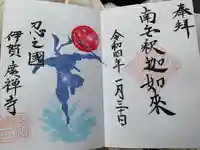 奉拝
南無釈迦如來
令和四年一月三十日
忍之國
伊賀 廣禅寺